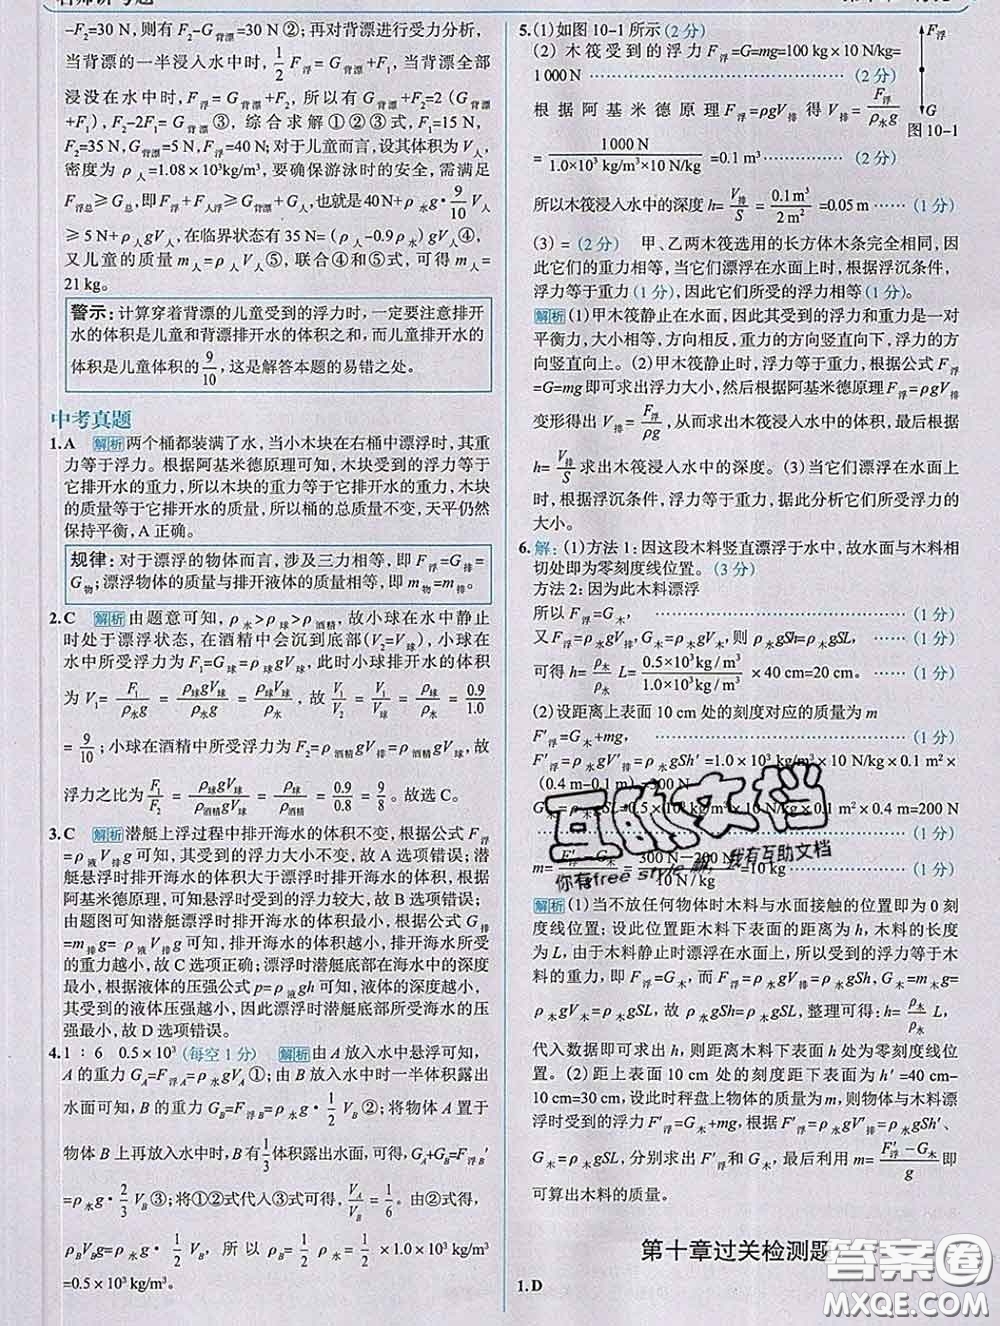 -F₂=30 N，则有 F₂-G背漂=30 N ②；再对背漂进行受力分析，
当背漂的一半浸入水中时，1/2 F浮=G背漂+F₁，当背漂全部
浸没在水中时，F浮=G背漂+F₂，所以有 G背漂+F₂=2（G背漂
+F₁），F₂-2F₁=G背漂 ③，综合求解①②③式，F₁=15 N，
F₂=35 N，G背漂=5 N，F浮=40 N；对于儿童而言，设其体积为 V人，
密度为 ρ人=1.08×10³kg/m³，要确保游泳时的安全，需满足
F浮总≥G总，即 F浮+F人浮≥G背漂+G人，也就是 40 N+ρ水g·9/10 V人
≥5 N+ρ人gV人，在临界状态有 35 N=（ρ人-0.9ρ水）gV人④，
又儿童的质量 m人=ρ人V人⑤，联合④和⑤式，可得 m人=
21 kg。
警示：计算穿着背漂的儿童受到的浮力时，一定要注意排开
水的体积是儿童和背漂排开水的体积之和，而儿童排开水的
体积是儿童体积的 9/10，这是解答本题的易错之处。
中考真题
1.A 解析 两个桶都装满了水，当小木块在右桶中漂浮时，其重
力等于浮力。根据阿基米德原理可知，木块受到的浮力等于
它排开水的重力，所以木块的重力等于它排开水的重力，木块
的质量等于它排开水的质量，所以桶的总质量不变，天平仍然
保持平衡，A 正确。
规律：对于漂浮的物体而言，涉及三力相等，即 F浮=G排=
G物；漂浮物体的质量与排开液体的质量相等，即 m物=m排。
2.C 解析 由题意可知，ρ水>ρ球>ρ酒精，故小球在水中静止
时处于漂浮状态，在酒精中会沉到底部(V₂=V球)，小球在
水中所受浮力为 F₁=G球=ρ球gV球，此时小球排开水的体积
为 V₁=F₁/ρ水g=ρ球gV球/ρ水g=ρ球V球/ρ水，故 V₁/V₂=V₁/V球=ρ球/ρ水=0.9/1.0
=9/10；小球在酒精中所受浮力为 F₂=ρ酒精gV排=ρ酒精gV球，故
浮力之比为 F₁/F₂=ρ球gV球/ρ酒精gV球=ρ球/ρ酒精=0.9/0.8=9/8。故选 C。
3.C 解析 潜艇上浮过程中排开海水的体积不变，根据公式 F浮
=ρ液V排g 可知，其受到的浮力大小不变，故 A 选项错误；潜
艇悬浮时排开海水的体积大于漂浮时排开海水的体积，根据
阿基米德原理，可知悬浮时受到的浮力较大，故 B 选项错误；
由题图可知潜艇漂浮时排开海水的体积最小，根据公式 G排
=m排g=ρ液V排g 可知，排开海水的体积越小，排开海水所受
的重力越小，故 C 选项正确；漂浮时潜艇底部在海水中的深度
最小，根据液体的压强公式 p=ρ液gh 可知，液体的深度越小，
其受到的液体压强越小，因此漂浮时潜艇底部所受海水的压
强最小，故 D 选项错误。
4.1∶6 0.5×10³（每空 1 分） 解析 由 A 放入水中悬浮可知，
A 的重力 G_A=F浮A=ρ水gV_A ①；由 B 放入水中时一半体积露出
水面可知，B 的重力 G_B=F浮B=ρ水g 1/2 V_B ②；将物体 A 置于
物体 B 上再放入水中时，B 有 1/3 体积露出水面，可得，G_A+G_B=F浮B′
=ρ水g·2/3 V_B ③；将①②式代入③式可得，V_A/V_B=1/6。由②式得，
ρ_BV_Bg=ρ水g·1/2 V_B，所以 ρ_B=1/2 ρ水=1/2×1.0×10³ kg/m³
=0.5×10³ kg/m³。
5.(1)如图 10-1 所示(2 分)
F浮
G
图 10-1
(2) 木筏受到的浮力 F浮=G=mg=100 kg×10 N/kg=
1 000 N ……………………（2 分）
根据阿基米德原理 F浮=ρgV排 得 V排=F浮/ρ水g
=1 000 N/(1.0×10³ kg/m³×10 N/kg)=0.1 m³ ……………（2 分）
所以木筏浸入水中的深度 h=V排/S=0.1 m³/2 m²=0.05 m ……（1 分）
(3) =（2 分） 甲、乙两木筏选用的长方体木条完全相同，因
此它们的重力相等，当它们漂浮在水面上时，根据浮沉条件，
浮力等于重力(1 分)，因此它们所受的浮力相等(1 分)。
解析 (1)甲木筏静止在水面，因此其受到的浮力和重力是一对
平衡力，大小相等，方向相反，重力的方向竖直向下，浮力的方
向竖直向上。(2)甲木筏静止时，浮力等于重力，根据公式 F浮
=G=mg 即可求出浮力大小，然后根据阿基米德原理 F浮=ρgV排
变形得出 V排=F浮/ρg，从而求出木筏浸入水中的体积，根据公式
h=V排/S 求出木筏浸入水中的深度。(3)当它们漂浮在水面上
时，根据浮沉条件，浮力等于重力，据此分析它们所受浮力的
大小。
6.解：(1)方法 1：因这段木料竖直漂浮于水中，故水面与木料相
切处即为零刻度线位置。（3 分）
方法 2：因为此木料漂浮
所以 F浮=G木， ……………………（1 分）
又 F浮=ρ水gV排，G木=ρ木gV木，则 ρ水gSh=ρ木gSL，……（1 分）
可得 h=ρ木/ρ水 L=0.5×10³kg/m³/1.0×10³kg/m³×40 cm=20 cm。……（1 分）
(2)设距离上表面 10 cm 处的刻度对应的质量为 m
F′浮=G木+mg， ……………………（1 分）
F′浮=ρ水gV′排=ρ水gSh′=1.0×10³ kg/m³×10 N/kg×0.1 m²×
(0.4 m-0.1 m)=300 N ……（1 分）
G木=ρ木gSL=0.5×10³ kg/m³×10 N/kg×0.1 m²×0.4 m=200 N
……………………（1 分）
m=F′浮-G木/g=300 N-200 N/10 N/kg=10 kg ……（1 分）
解析 (1)当不放任何物体时木料与水面接触的位置即为 0 刻
度线位置；设此位置距木料下表面的距离为 h，木料的长度
为 L，由于木料静止时漂浮在水面上，所以受到的浮力等于木
料的重力，即 F浮=G木，而 F浮=ρ水gV排=ρ水gSh，G木=m木g=
ρ木gV木=ρ木gSL，故 ρ水gSh=ρ木gSL，整理可得：h=ρ木/ρ水 L，
代入数据即可求出 h，则距离木料下表面 h 处为零刻度线位
置。(2)距上表面 10 cm 处的刻度距下表面 h′=40 cm-
10 cm=30 cm，设此时秤盘上物体的质量为 m，则物体与木料漂
浮时受到的浮力 F′浮=G木+mg，根据 F′浮=ρ水gV′排=ρ水gSh′、
G木=ρ木gSL，分别求出 F′浮和 G木，最后利用 m=F′浮-G木/g 即
可算出木料的质量。
第十章过关检测题
1.D
互助文档
你有free style嘛，我有互助文档
答案圈
MXQE.COM